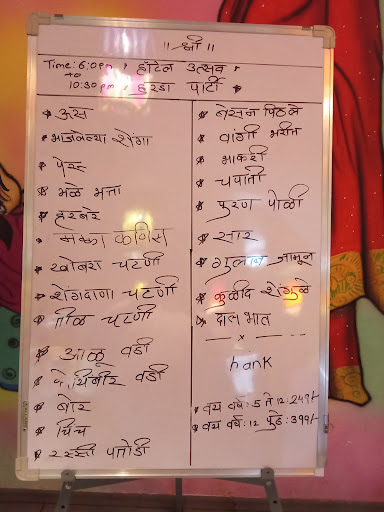 ॥ श्री ॥
Time: 6:0pm
to
10:30pm
हॉटेल उत्सव
हुरडा पार्टी
ऊस
भाजलेल्या शेंगा
पेरू
भळे भत्ता
हरबरे
मक्का कणिस
खोबरा चटणी
शेंगदाणा चटणी
तीळ चटणी
आळू वडी
कोथिंबीर वडी
बोर
चिंच
रस्सा पातोडी
बेसन पिठले
वांगी भरीत
भाकरी
चपाती
पुरण पोळी
सार
गुलाब जामून
कुळीद शेंगुळे
दाल भात
— x —
hank
वय वर्षे : 5 ते 12 : 249/-
वय वर्षे : 12 पुढे : 399/-